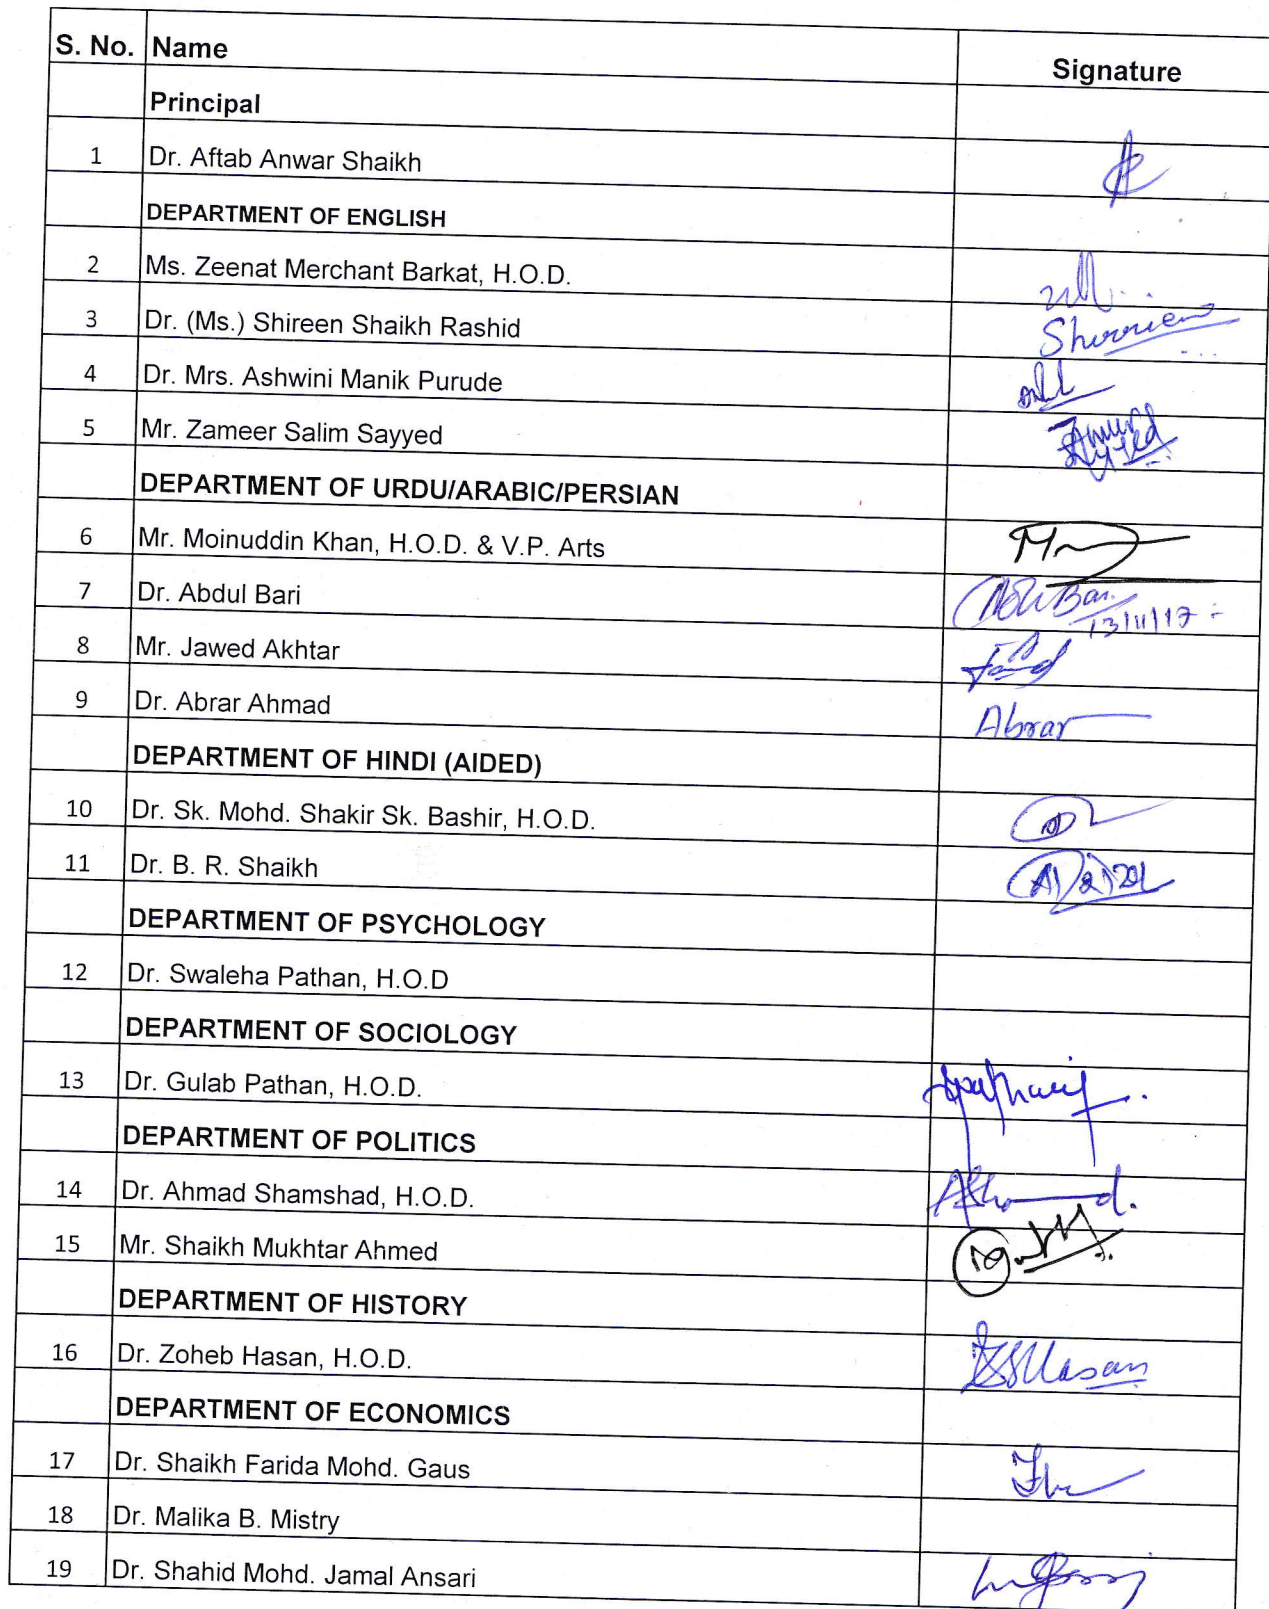 S. No. Name Signature
Principal
1 Dr. Aftab Anwar Shaikh
DEPARTMENT OF ENGLISH
2 Ms. Zeenat Merchant Barkat, H.O.D.
3 Dr. (Ms.) Shireen Shaikh Rashid
4 Dr. Mrs. Ashwini Manik Purude
5 Mr. Zameer Salim Sayyed
DEPARTMENT OF URDU/ARABIC/PERSIAN
6 Mr. Moinuddin Khan, H.O.D. & V.P. Arts
7 Dr. Abdul Bari 13/11/17
8 Mr. Jawed Akhtar
9 Dr. Abrar Ahmad Abrar
DEPARTMENT OF HINDI (AIDED)
10 Dr. Sk. Mohd. Shakir Sk. Bashir, H.O.D.
11 Dr. B. R. Shaikh
DEPARTMENT OF PSYCHOLOGY
12 Dr. Swaleha Pathan, H.O.D
DEPARTMENT OF SOCIOLOGY
13 Dr. Gulab Pathan, H.O.D.
DEPARTMENT OF POLITICS
14 Dr. Ahmad Shamshad, H.O.D.
15 Mr. Shaikh Mukhtar Ahmed
DEPARTMENT OF HISTORY
16 Dr. Zoheb Hasan, H.O.D.
DEPARTMENT OF ECONOMICS
17 Dr. Shaikh Farida Mohd. Gaus
18 Dr. Malika B. Mistry
19 Dr. Shahid Mohd. Jamal Ansari